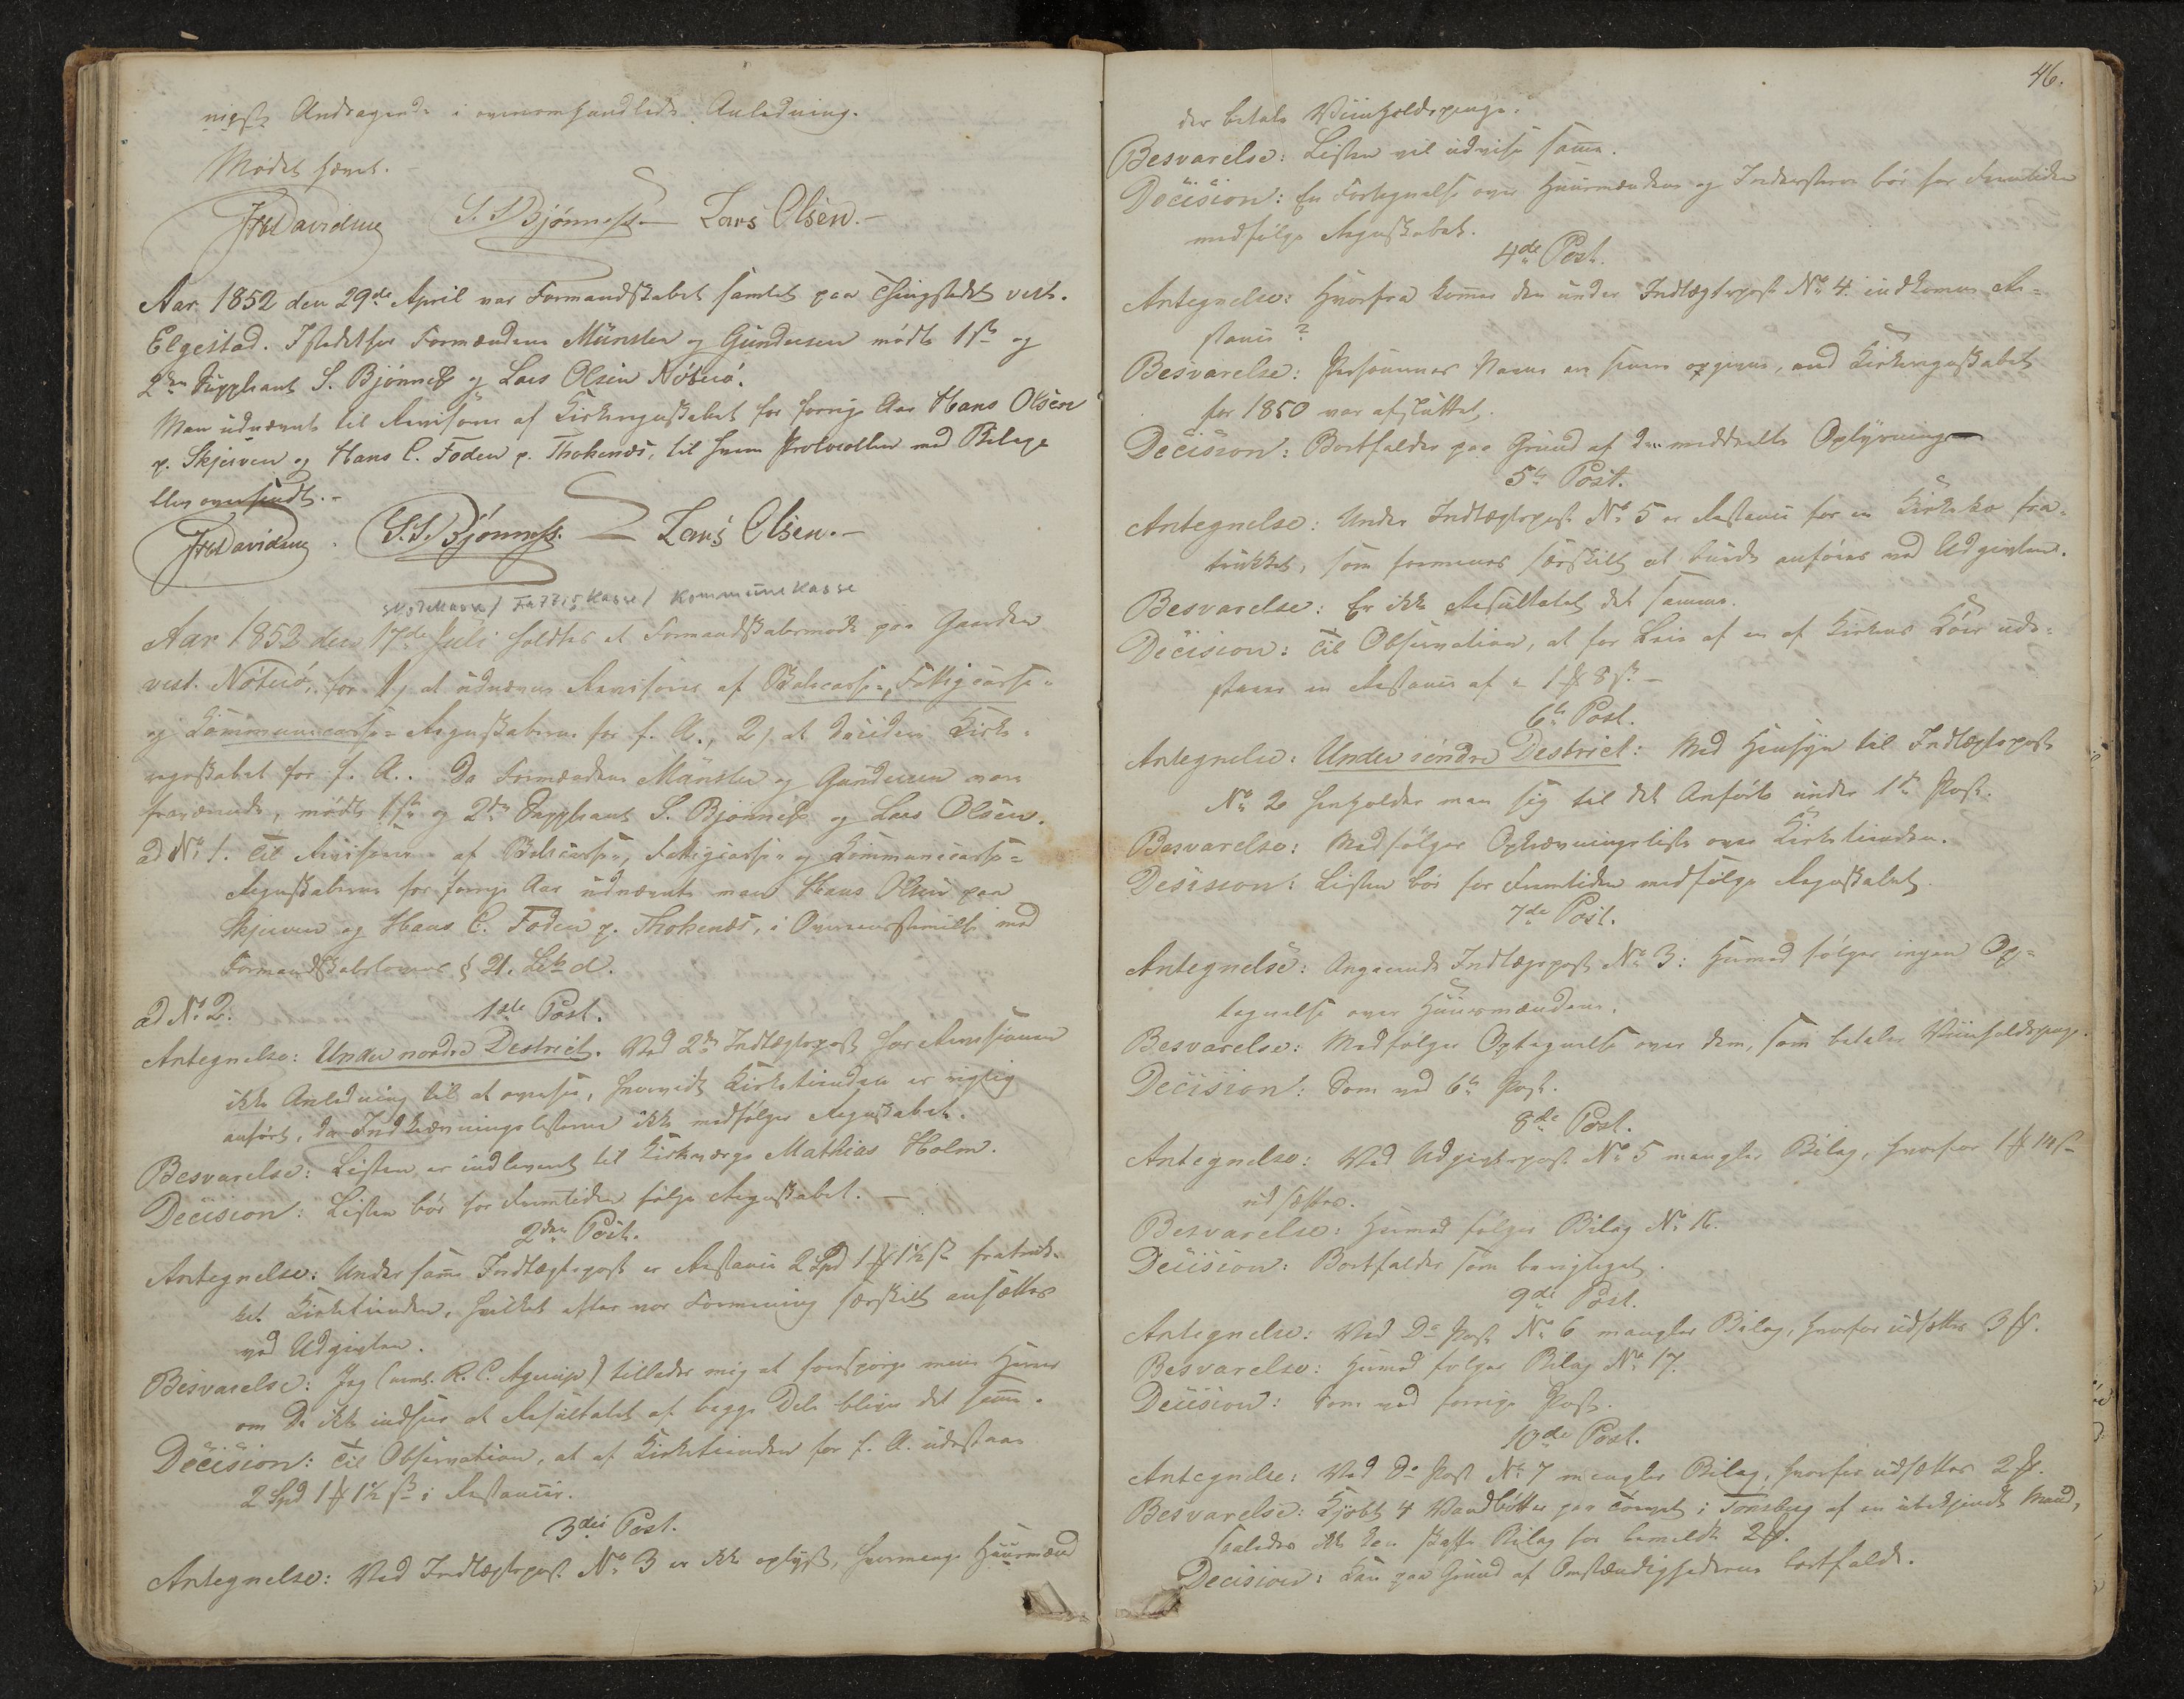 nigste Andragende i ovenomhandlede Anledning.
Mødet hævet. -
FH Davidsen S. S. Bjønness. Lars Olsen. -
Aar 1852 den 29de April var Formandskabet samlet paa Thingstedet vest.
Elgestad. Istedetfor Formændene Münster og Gundersen mødte 1ste og
2den Suppleant S. Bjønness og Lars Olsen Nøterø.
Man udnævnte til Revisorer af Kirkeregnskabet for forrige Aar Hans Olsen
p. Skjerven og Hans C. Foden p. Thokenæs, til hvem Protocollen med Bilage
blev oversendt. -
FH Davidsen. S. S. Bjønness. Lars Olsen. -
Skolekasse / Fattigkasse / Kommunekasse
Aar 1852 den 17de Juli holdtes et Formandskabsmøde paa Gaarden
vest. Nøterø, for 1, at udnævne Revisorer af Skolecasse-, Fattigcasse-
og Kommunecasse-Regnskaberne for f. A., 2) at decidere Kirke-
regnskabet for f. A.. Da Formændene Münster og Gundersen vare
fraværende, mødte 1ste og 2den Suppleant S. Bjønness og Lars Olsen.
ad No 1. Til Revisorer af Skolecasse-, Fattigcasse- og Kommunecasse-
Regnskaberne for forrige Aar udnævnte man Hans Olsen paa
Skjerven og Hans C. Foden p. Thokenæs, i Overensstemmelse med
Formandskabslovens § 21. Litr d.
ad No 2. 1ste Post.
Antegnelse: Under nordre Destrict. Ved 2den Indtægtspost har Revisionen
ikke Anledning til at oversee, hvorvidt Kirketienden er rigtig
anført, da Indkrævningslisterne ikke medfølger Regnskabet.
Besvarelse: Listen er indleveret til Kirkeværge Mathias Holm.
Decision: Listen bør for Fremtiden følge Regnskabet. -
2den Post.
Antegnelse: Under samme Indtægtspost er Restance 2 Spd 1 # 1½ s fratruk-
ket Kirketienden, hvilket efter vor Formening særskilt ansættes
ved Udgivten.
Besvarelse: Jeg (nml. R. C. Agerup) tillader mig at forespørge mine Herrer
om De ikke indseer at Resultatet af begge Dele bliver det samme.
Decision: Til Observation, at af Kirketienden for f. A. udestaar
2 Spd 1 # 1½ s i Restancer.
3die Post.
Antegnelse: Ved Indtægtspost No 3 er ikke oplyst, hvormange Huusmænd
46.
der betale Viinholdspenge.
Besvarelse: Listen vil udvise samme.
Decision: En Fortegnelse over Huusmændene og Inderster bør for Fremtiden
medfølge Regnskabet.
4de Post.
Antegnelse: Hvorfra kommer den under Indtægtspost No 4 indkomne Re-
stance?
Besvarelse: Personernes Navne ere senere opgivne, end Kirkeregnskabet
for 1850 var afsluttet.
Decision: Bortfalder paa Grund af den meddeelte Oplysning
5te Post.
Antegnelse: Under Indtægtspost No 5 er Restance for en Kirkeko fra-
trukket, som formenes særskilt at burde anføres ved Udgivten.
Besvarelse: Er ikke Resultatet det samme.
Decision: Til Observation, at for Leie af en af Kirkens Køer ude-
staaer en Restance af - 1 # 8 s. -
6te Post.
Antegnelse: Under søndre Destrict: Med Hensyn til Indtægtspost
No 2 henholder man sig til det Anførte under 1ste Post.
Besvarelse: Medfølger Opkrævningsliste over Kirketienden.
Desision: Listen bør for Fremtiden medfølge Regnskabet.
7de Post.
Antegnelse: Angaaende Indtægtspost No 3: Hermed følger ingen Op-
tegnelse over Huusmændene.
Besvarelse: Medfølger Optegnelse over dem, som betaler Viinholdspenge.
Decision: Som ved 6te Post.
8de Post.
Antegnelse: Ved Udgivtspost No 5 mangler Bilag, hvorfor 1 # 14 s
udsættes.
Besvarelse: Hermed følger Bilag No 16.
Decision: Bortfalder som berigtiget.
9de Post.
Antegnelse: Ved Do Post No 6 mangler Bilag, hvorfor udsættes 3 #.
Besvarelse: Hermed følger Bilag No 17.
Decision: Som ved forrige Post.
10de Post.
Antegnelse: Ved Do Post No 7 mangler Bilag, hvorfor udsættes 2 #.
Besvarelse: Kjøbt 4 Vandbøtter paa Torvet i Tonsberg af en ubekjendt Mand,
saaledes ikke kan skaffe Bilag for bemeldte 2 #.
Decision: Kan paa Grund af Omstændighederne bortfalde.